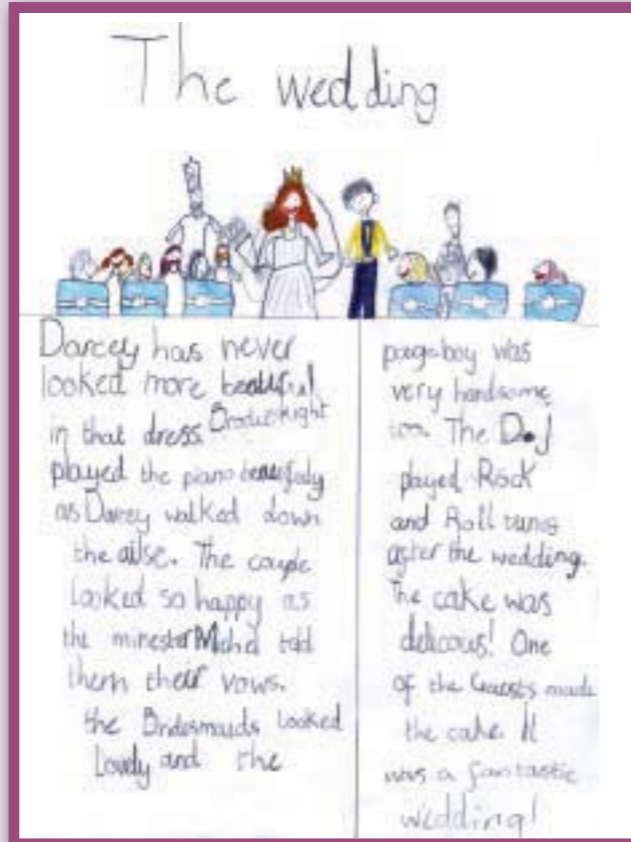 The wedding
Darcey has never
looked more beautiful
in that dress.
played the piano
as Darcey walked down
the ailse. The couple
looked so happy as
the minester told
them their vows.
the Bridesmaids looked
Lovely and the
pageboy was
very handsome
too. The D.J
played Rock
and Roll tunes
after the wedding.
The cake was
delicous! One
of the Guests made
the cake. It
was a fantastic
wedding!